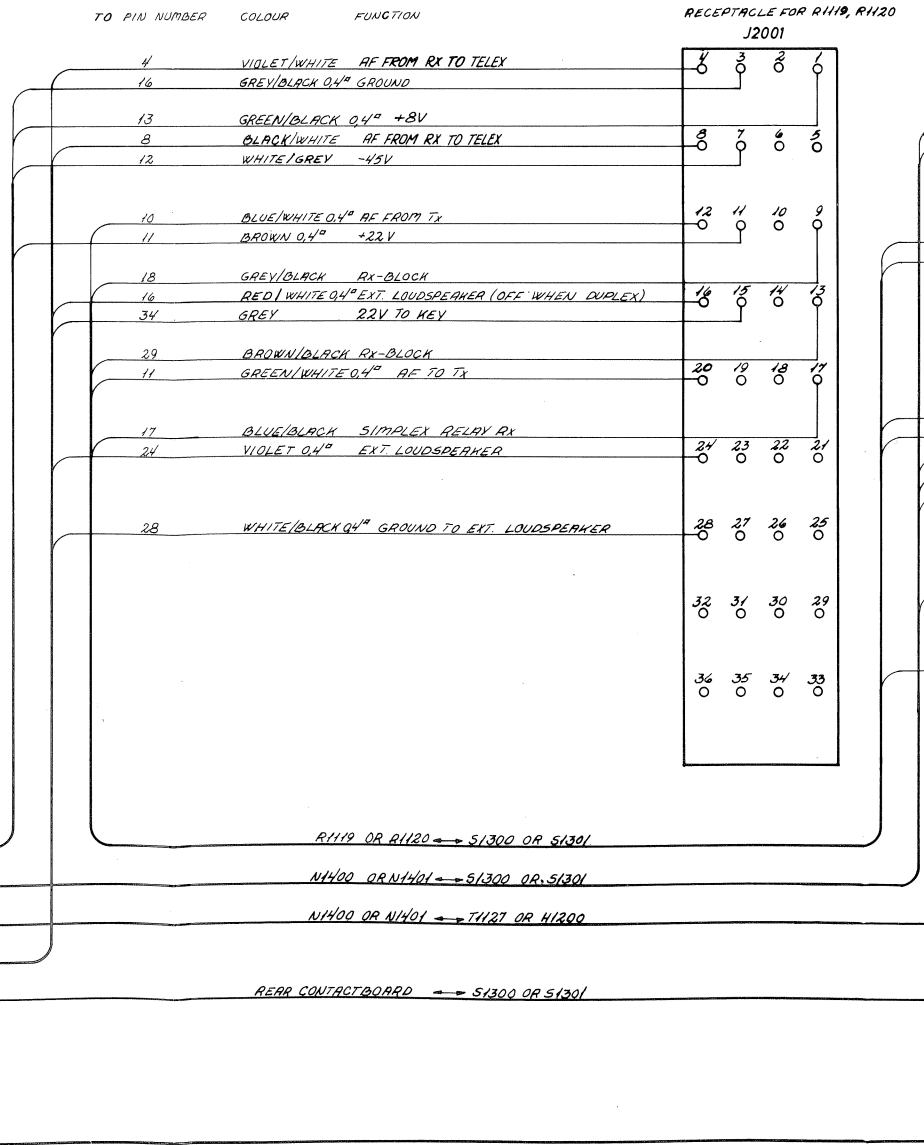 TO PIN NUMBER COLOUR FUNCTION RECEPTACLE FOR R1119, R1120
J2001
4 VIOLET/WHITE AF FROM RX TO TELEX 4 3 2 1
16 GREY/BLACK 0,4¤ GROUND
13 GREEN/BLACK 0,4¤ +8V
8 BLACK/WHITE AF FROM RX TO TELEX 8 7 6 5
12 WHITE/GREY -45V
10 BLUE/WHITE 0,4¤ AF FROM Tx 12 11 10 9
11 BROWN 0,4¤ +22V
18 GREY/BLACK Rx-BLOCK
16 RED/WHITE 0,4¤ EXT. LOUDSPEAKER (OFF WHEN DUPLEX) 16 15 14 13
34 GREY 22V TO KEY
29 BROWN/BLACK Rx-BLOCK
11 GREEN/WHITE 0,4¤ AF TO Tx 20 19 18 17
17 BLUE/BLACK SIMPLEX RELAY Rx
24 VIOLET 0,4¤ EXT. LOUDSPEAKER 24 23 22 21
28 WHITE/BLACK 0,4¤ GROUND TO EXT. LOUDSPEAKER 28 27 26 25
32 31 30 29
36 35 34 33
R1119 OR R1120 ↔ S1300 OR S1301
N1400 OR N1401 ↔ S1300 OR S1301
N1400 OR N1401 ↔ T1127 OR H1200
REAR CONTACTBOARD ↔ S1300 OR S1301